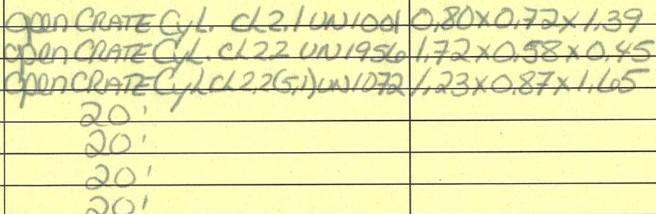 open CRATE Cyl. cl 2.1 UN1001 0.80x0.72x1.39
open CRATE Cyl. cl 2.2 UN1956 1.72x0.58x0.45
open CRATE Cyl cl 2.2(5.1) UN1072 1.23x0.87x1.65
20'
20'
20'
20'